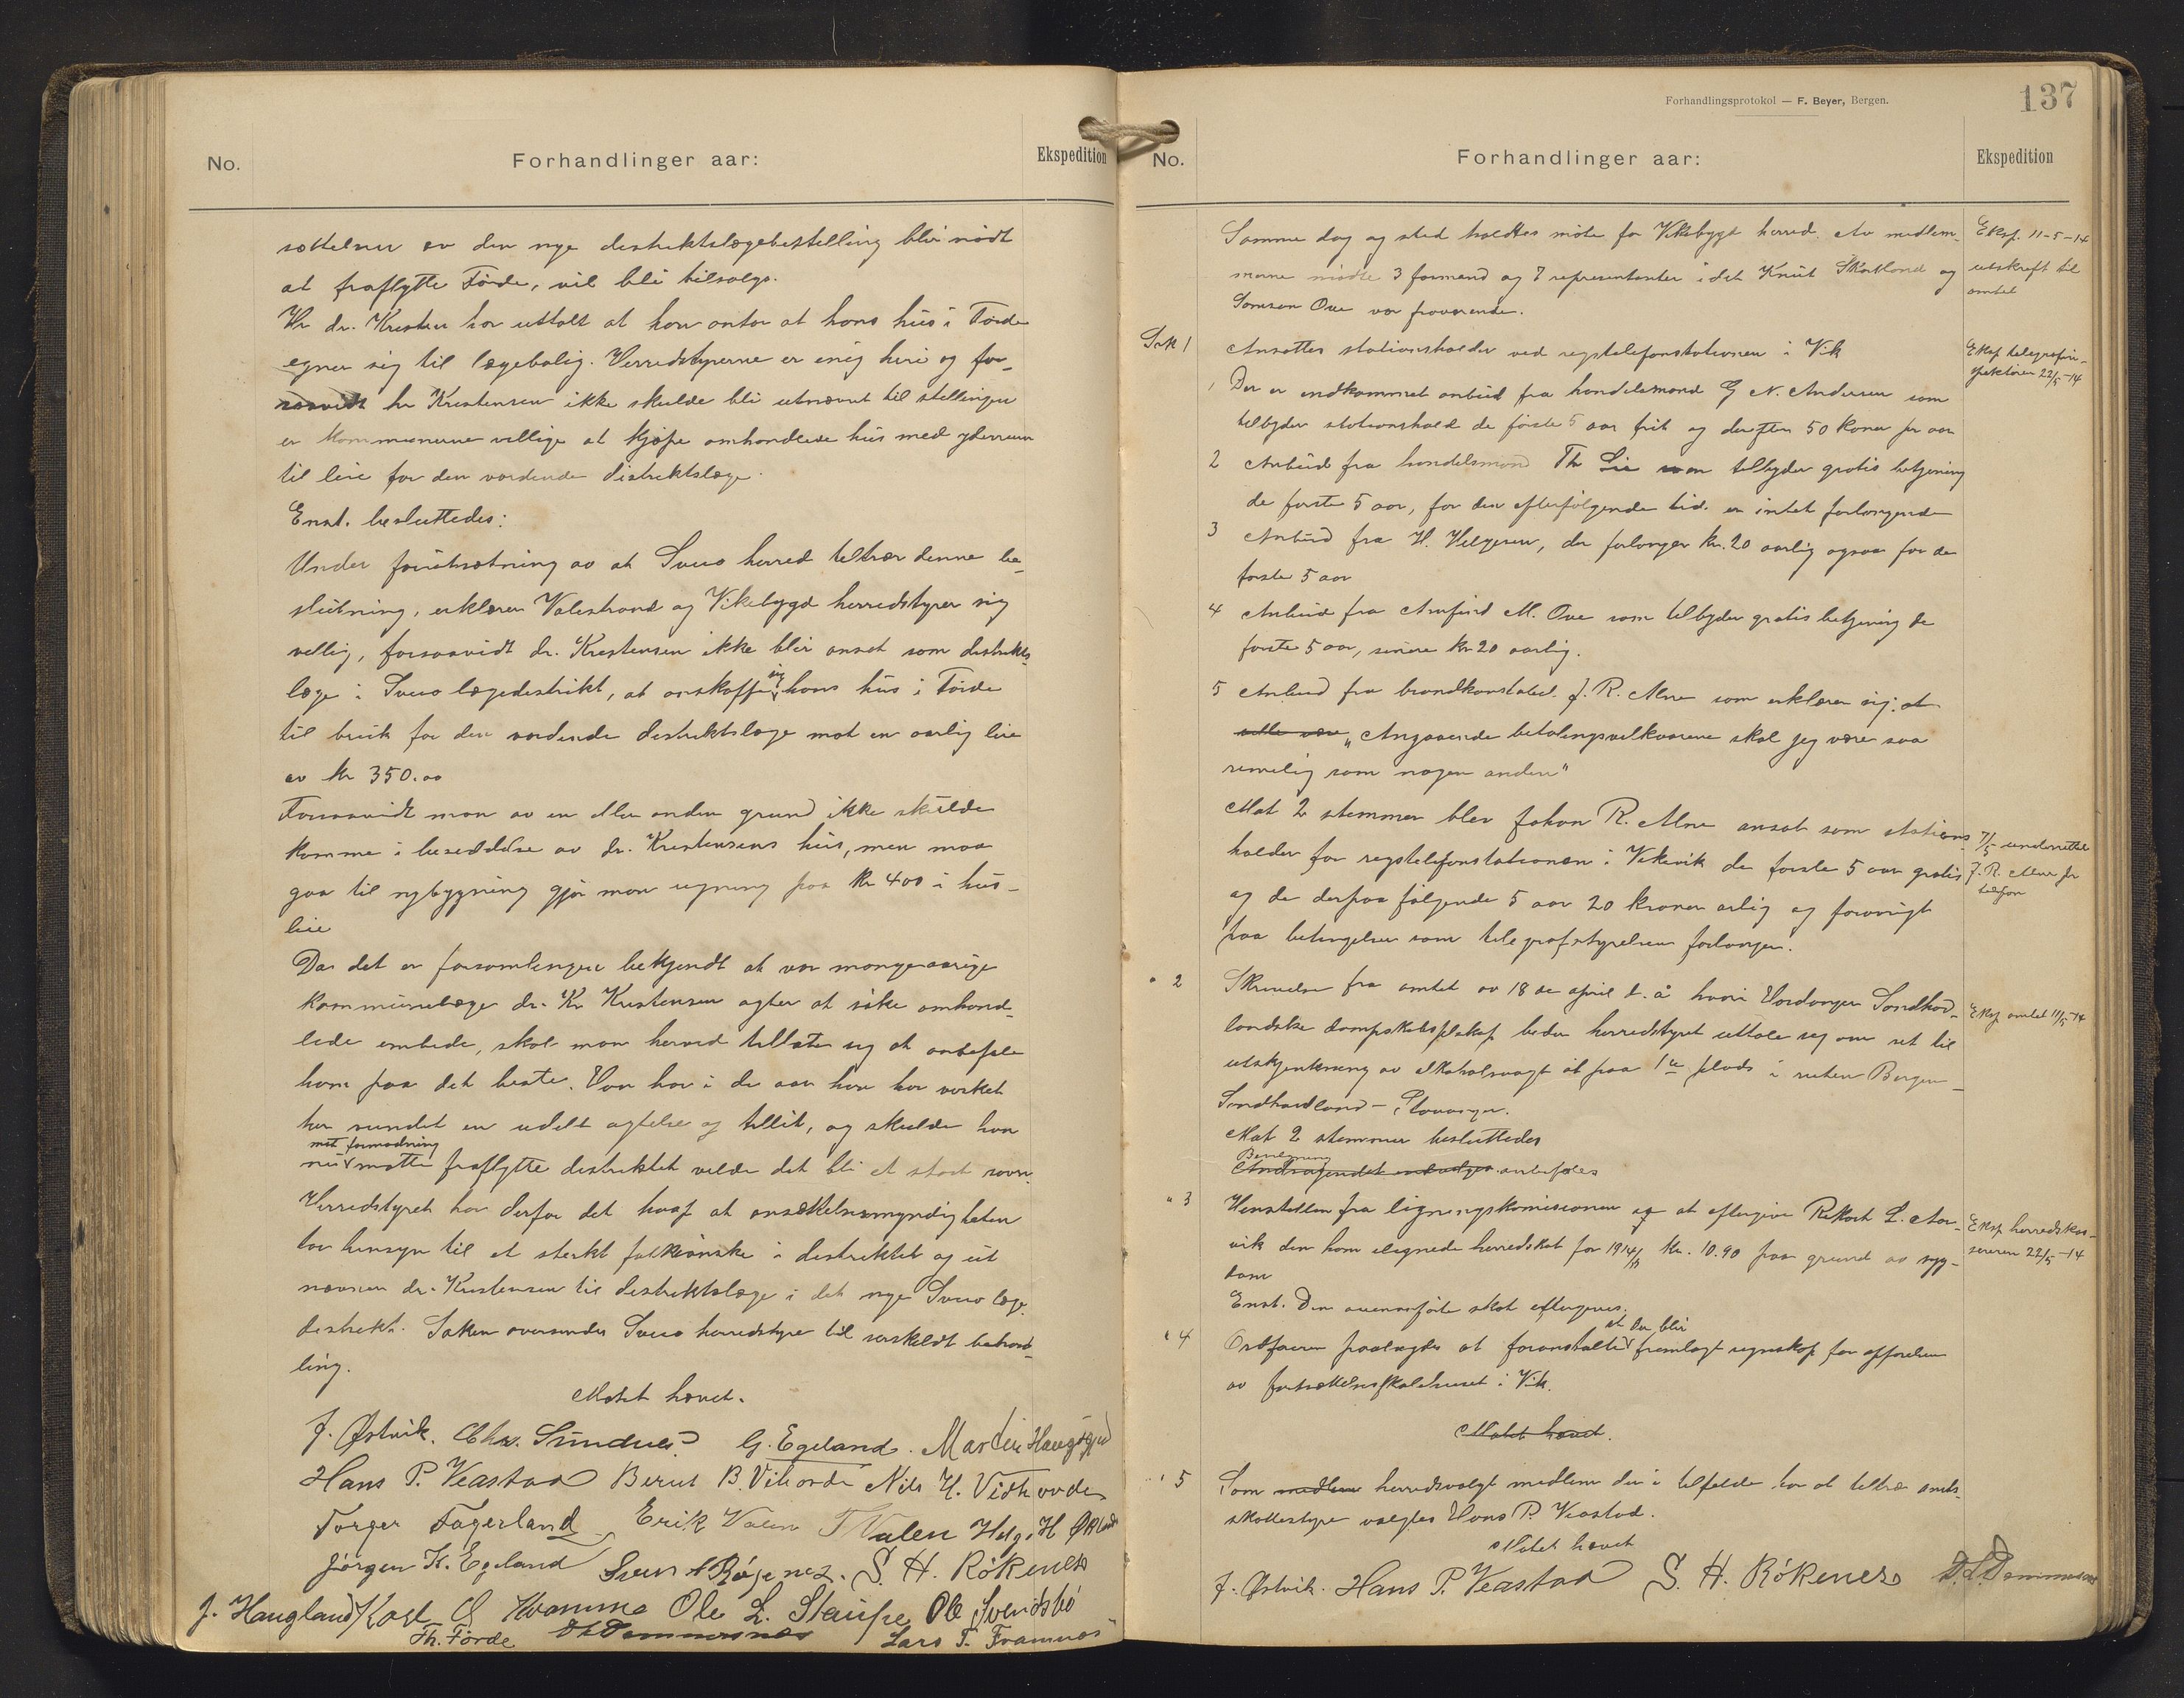 No.
Forhandlinger aar:
Ekspedition
sættelser av den nye distriktslægebestilling blir nødt
at fraflytte Førde, vil bli tilsalgs.
Hr dr. Kristensen har uttalt at han antar at hans hus i Førde
egner sig til lægebolig. Herredstyrerne er enig heri og for-
saavidt hr Kristensen ikke skulde bli utnævnt til stillingen
er kommunerne villige at kjøpe omhandlede hus med yderrum
til leie for den vordende distriktslæge.
Enst. besluttedes:
Under forutsætning av at Sveio herred tiltrær denne be-
slutning, erklærer Valestrand og Vikebygd herredstyrer sig
villig, forsaavidt dr. Kristensen ikke blir ansat som distrikts-
læge i Sveio lægedistrikt, at anskaffe sig hans hus i Førde
til bruk for den vordende distriktslæge mot en aarlig leie
av kr 350.00
Forsaavidt man av en eller anden grund ikke skulde
komme i besiddelse av dr. Kristensens hus, men maa
gaa til nybygning gjør man regning paa kr 400 i hus-
leie
Da det er forsamlingen bekjendt at vor mangeaarige
kommunelæge dr. Kr Kristensen agter at søke omhand-
lede embede, skal man herved tillate sig at anbefale
ham paa det beste. Han har i de aar han har virket
her vundet en udelt agtelse og tillit, og skulde han
mot formodning
nu maatte fraflytte distriktet vilde det bli et stort savn.
Herredstyret har derfor det haap at ansættelsesmyndigheten
tar hensyn til et sterkt folkeønske i distriktet og ut
nævner dr. Kristensen til distriktslæge i det nye Sveio læge-
distrikt. Saken oversendes Sveio herredstyre til særskildt behand-
ling.
Møtet hævet.
J. Østvik. Chr. Sundnes G. Egeland. Martin Haugsgjerd
Hans P. Veastad Berut B. Vihovde Nils H. Vihovde
Torger Fagerland Erik Valen T Valen Helge H Økland
Jørgen K. Egeland Svein Røgenes. S. H. Røkenes
J. Haugland Karl O Hvamme Ole L. Staupe Ole Svendsbø
Th. Førde D L Dommersnes Lars T. Framnes
Forhandlingsprotokol — F. Beyer, Bergen.
137
No.
Forhandlinger aar:
Ekspedition
Samme dag og sted holdtes møte for Vikebygd herred. Av medlem-
merne mødte 3 formænd og 7 representanter idet Knut Skartland og
Samson Ove var fraværende.
Eksp. 11-5-14
utskrift til
amtet
Sak 1 Ansættes stationsholder ved rigstelefonstationen i Vik
Eksp telegrafin-
spektøren 22/5-14
1 Der er indkommet anbud fra handelsmand G N. Andersen som
tilbyder stationshold de første 5 aar frit og derefter 50 kroner pr aar
2 Anbud fra handelsmand Th Lie som tilbyder gratis betjening
de første 5 aar, for den efterfølgende tid er intet forlangende
3 Anbud fra H. Helgesen, der forlanger kr. 20 aarlig ogsaa for de
første 5 aar
4 Anbud fra Arnfind M. Ove som tilbyder gratis betjening de
første 5 aar, senere kr 20 aarlig.
5 Anbud fra brandkonstabel J. R. Alne som erklærer sig: at
ville være „Angaaende betalingsvilkaarene skal jeg være saa
rimelig som nogen anden"
Mot 2 stemmer blev Johan R. Alne ansat som stations-
holder for rigstelefonstationen i Vikevik de første 5 aar gratis
og de derpaa følgende 5 aar 20 kroner arlig og forøvrigt
paa betingelser som telegrafstyrelsen forlanger.
7/5 underrettet
J. R. Alne pr
telefon
" 2 Skrivelse fra amtet av 18 de april d. å hvori Hardanger Søndhord-
landske dampskibsselskap beder herredstyret uttale sig om ret til
utskjenkning av alkoholsvagt øl paa 1ste plads i ruten Bergen-
Søndhordland - Stavanger.
Eksp amtet 11/5-14
Mot 2 stemmer besluttedes
Andragendet anbefales
" 3 Henstillen fra ligningskomisionen og at eftergive Rikart L. Aar-
vik den ham ilignede herredskat for 1914/15 kr. 10.90 paa grund av syg-
dom
Eksp herredskas-
sereren 22/5-14
Enst. Den ovenanførte skat eftergives.
" 4 Ordføreren paalægges at foranstalte at der blir fremlagt regnskap for opførelsen
av fortsættelsesskolehuset i Vik.
Møtet hævet.
" 5 Som medlem herredsvalgt medlem der i tilfælde har at tiltræ amts-
skattestyre valgtes Hans P. Veastad.
Møtet hævet
J. Østvik. Hans P. Veastad S. H. Røkenes D. L. Dommersnes